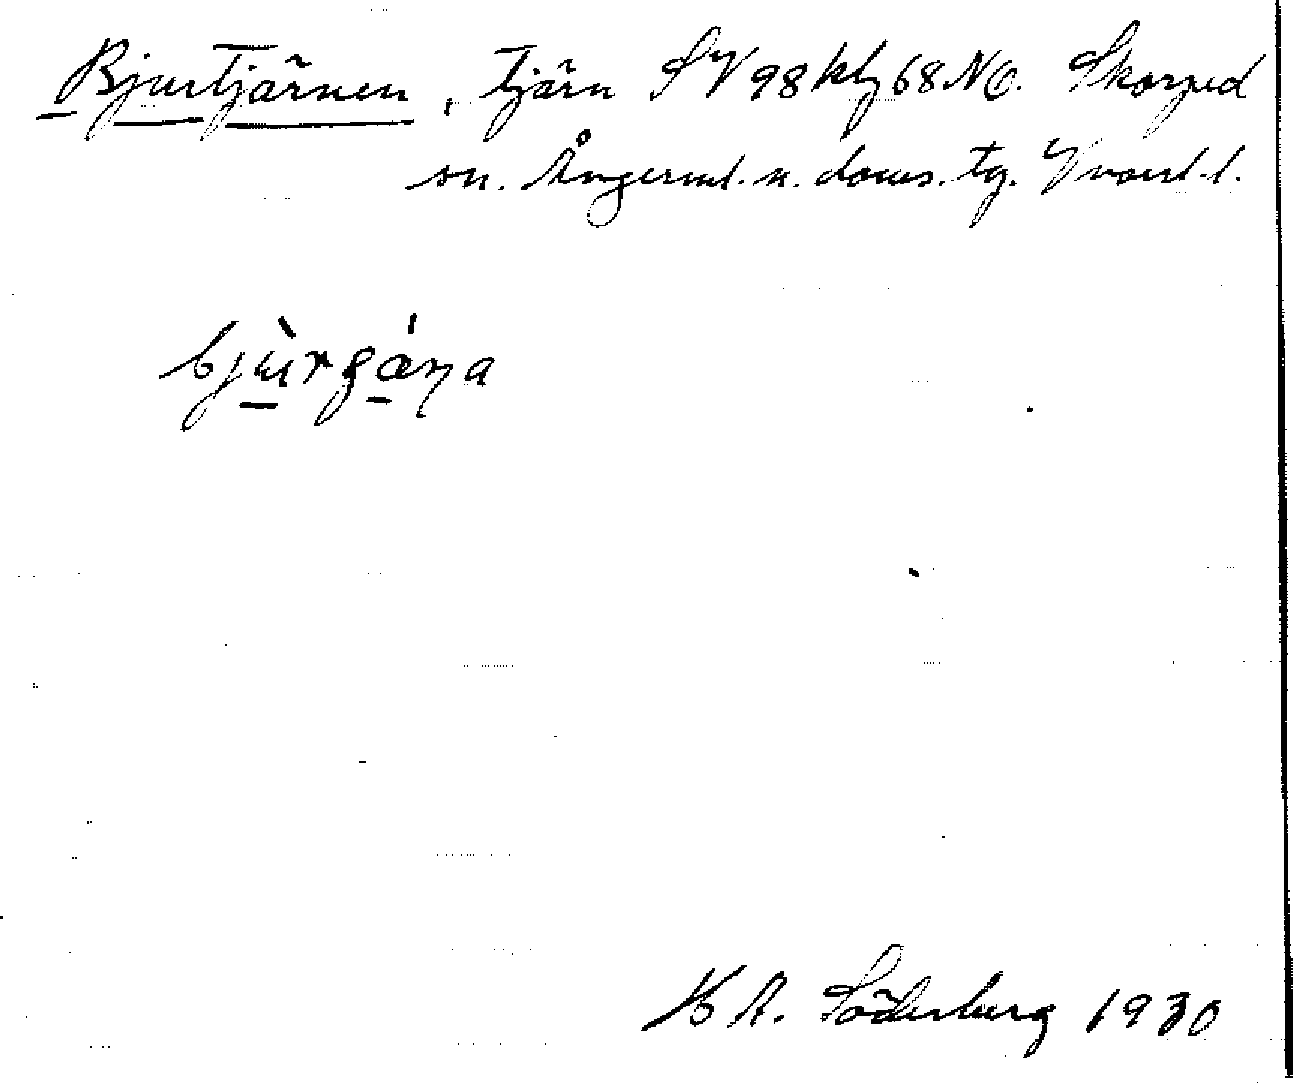 Bjurtjärnen, tjärn SV 98 kbl 68 NO. Skorped
sn. Ångerml. n. doms. tg. V
bjùrʂánа
K A. Söderberg 1930